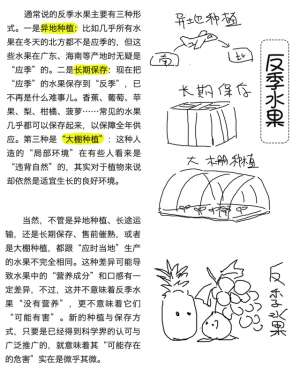 通常说的反季水果主要有三种形
式。一是异地种植：比如几乎所有水
果在冬天的北方都不是应季的，但这
些水果在广东、海南等产地时无疑是
“应季”的。二是长期保存：现在把
“应季”的水果保存到“反季”，已
不再是什么难事儿。香蕉、葡萄、苹
果、梨、柑橘、菠萝……常见的水果
几乎都可以保存起来，以保障全年供
应。第三种是“大棚种植”：这种人
造的“局部环境”在有些人看来是
“违背自然”的，其实对于植物来说
却依然是适宜生长的良好环境。
当然，不管是异地种植、长途运
输，还是长期保存、售前催熟，或者
是大棚种植，都跟“应时当地”生产
的水果不完全相同。这种差异可能导
致水果中的“营养成分”和口感有一
定差异，不过，这并不意味着反季水
果“没有营养”，更不意味着它们
“可能有害”。新的种植与保存方
式，只要是已经得到科学界的认可与
广泛推广的，就意味着其“可能存在
的危害”实在是微乎其微。
异地种植
南
北
长期保存
大棚种植
反季水果
反季水果